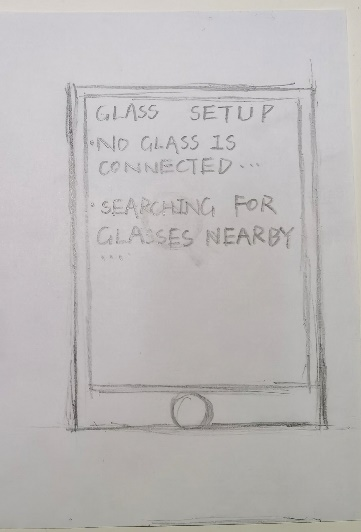 GLASS SETUP
·NO GLASS IS
CONNECTED...
·SEARCHING FOR
GLASSES NEARBY
...